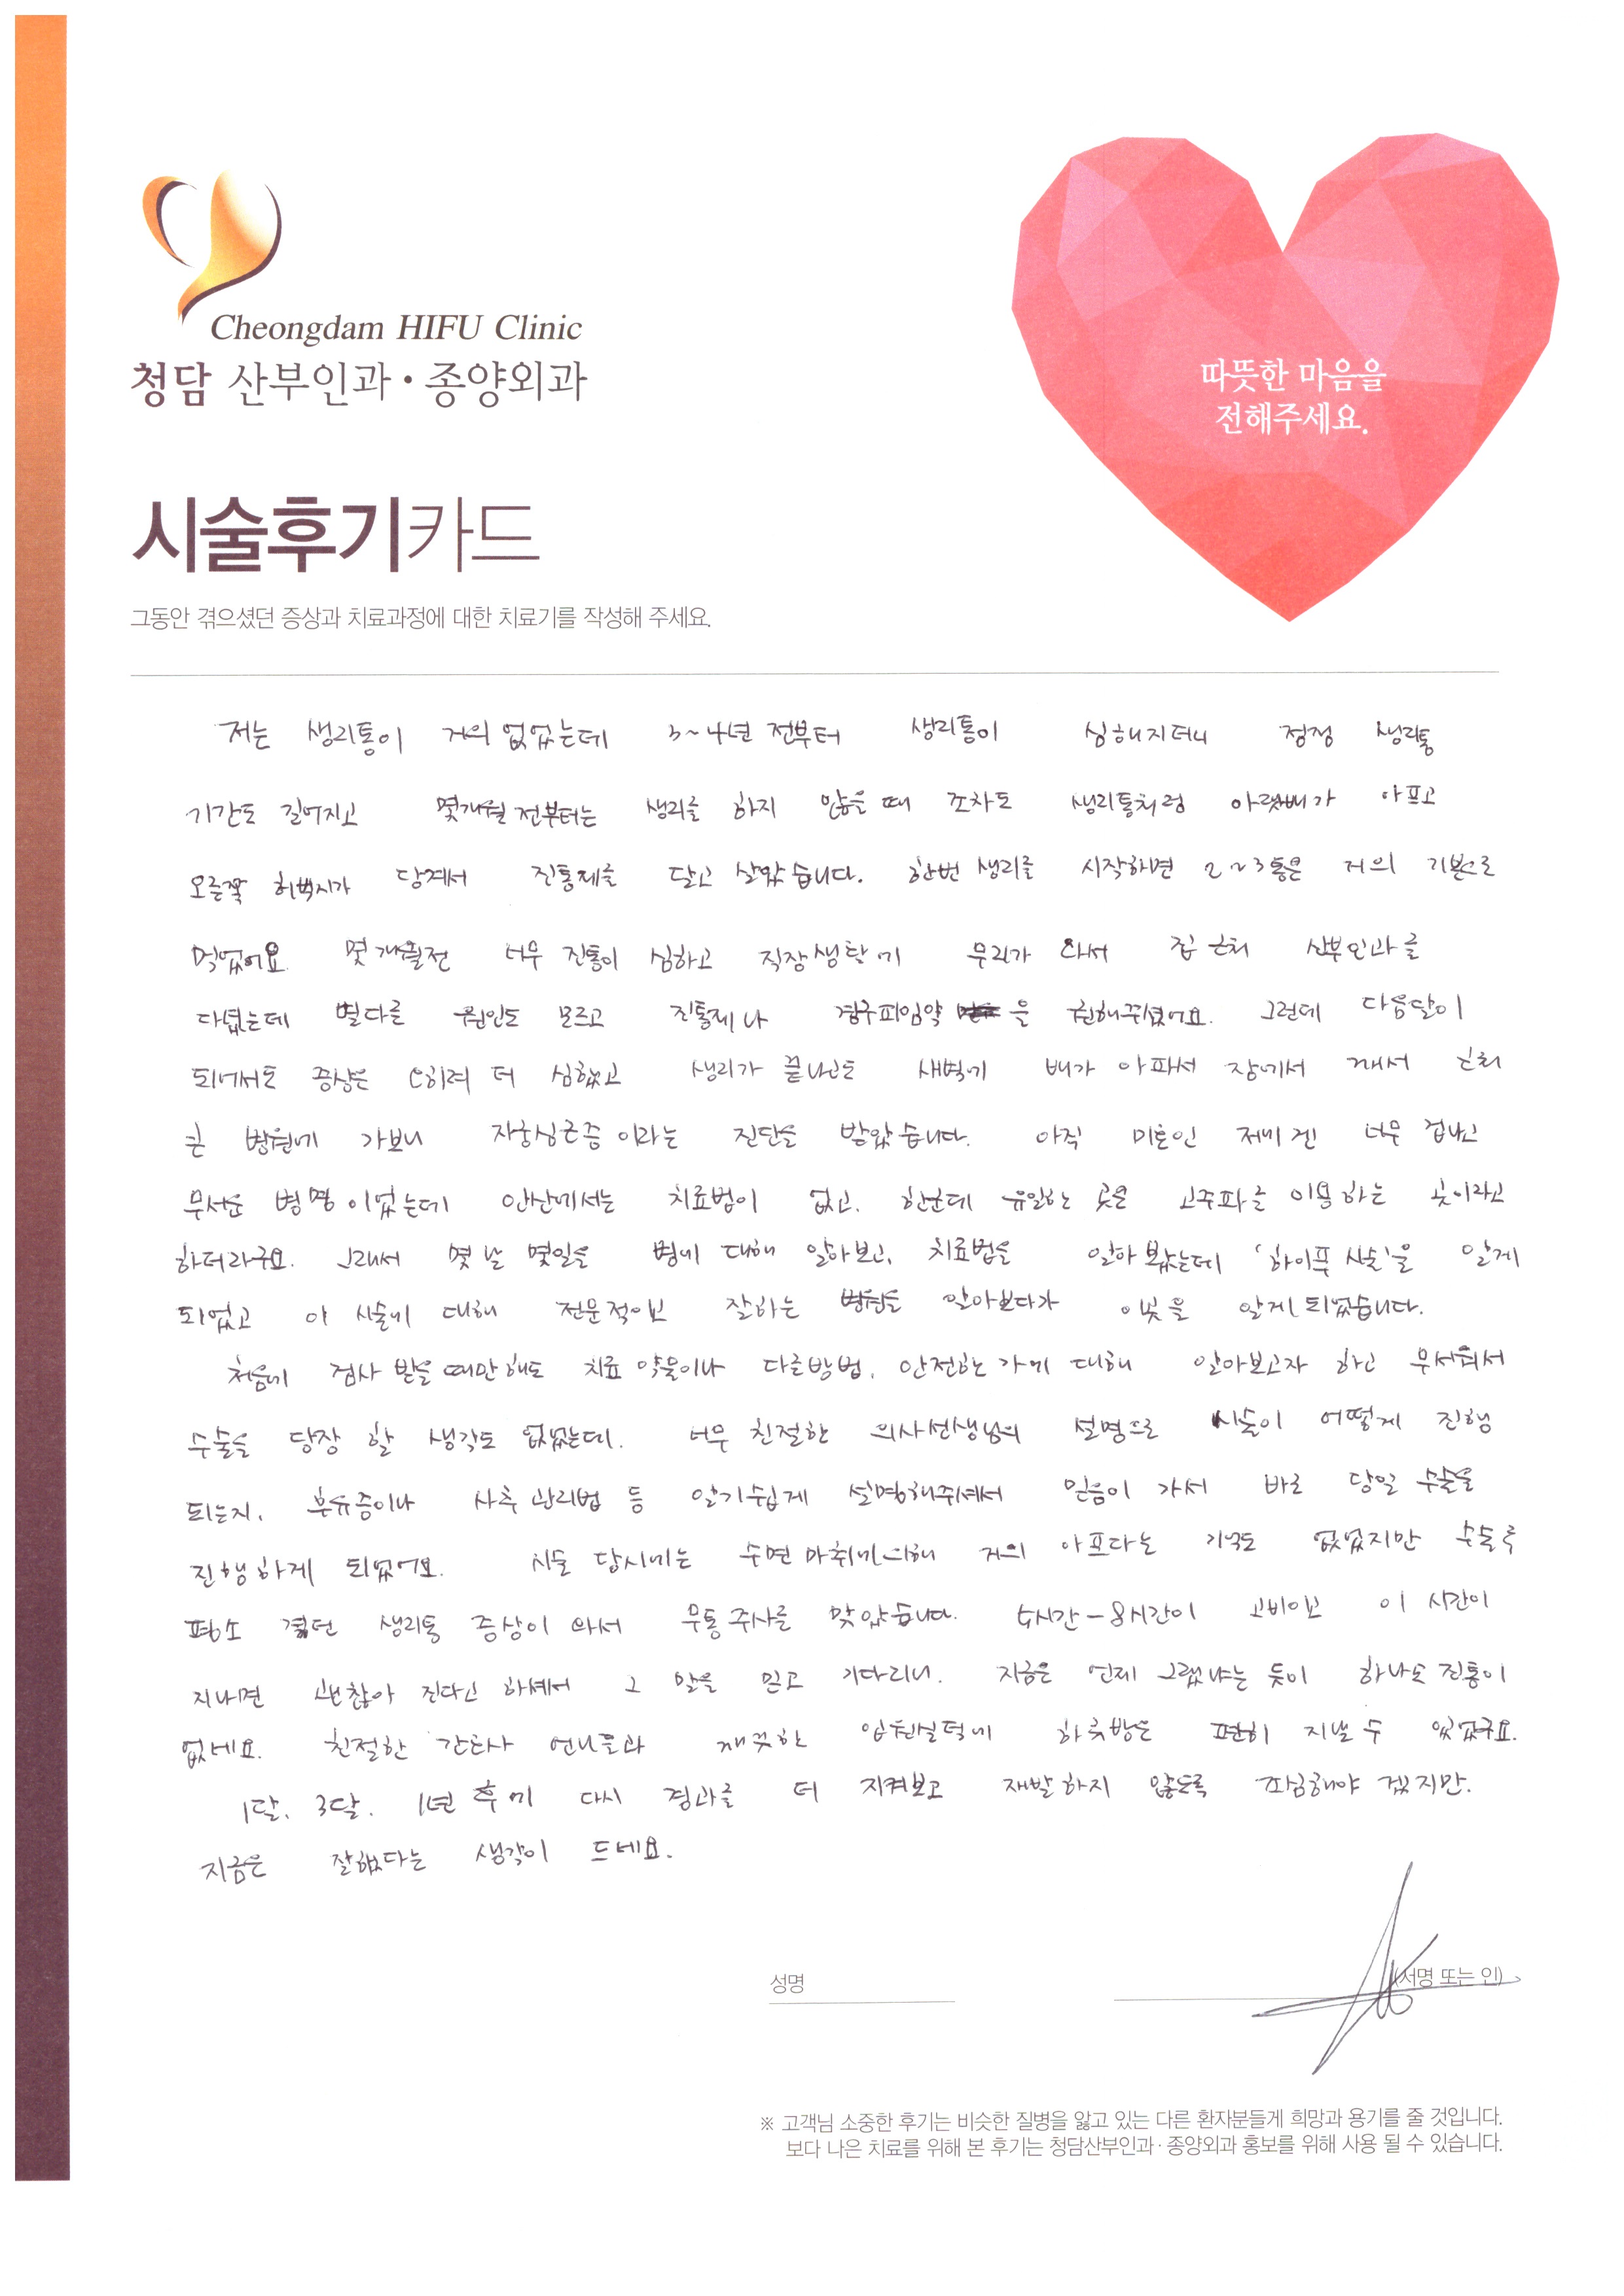 Cheongdam HIFU Clinic
청담 산부인과·종양외과
따뜻한 마음을
전해주세요.
시술후기카드
그동안 겪으셨던 증상과 치료과정에 대한 치료기를 작성해 주세요.
저는 생리통이 거의 없었는데 3~4년 전부터 생리통이 심해지더니 점점 생리통
기간도 길어지고 몇개월 전부터는 생리를 하지 않을 때 조차도 생리통처럼 아랫배가 아프고
오른쪽 허벅지가 당겨서 진통제를 달고 살았습니다. 한번 생리를 시작하면 2~3통은 거의 기본으로
먹었어요. 몇개월전 너무 진통이 심하고 직장생활에 무리가 와서 집 근처 산부인과를
다녔는데 별다른 원인도 모르고 진통제나 경구피임약을 권해주셨어요. 그런데 다음달이
되어서도 증상은 오히려 더 심했고 생리가 끝나고도 새벽에 배가 아파서 잠에서 깨서 근처
큰 병원에 가보니 자궁심근증이라는 진단을 받았습니다. 아직 미혼인 저에겐 너무 겁나고
무서운 병명이었는데 안산에서는 치료법이 없고. 한군데 유일한 곳은 고주파를 이용하는 곳이라고
하더라구요. 그래서 몇 날 몇일을 병에 대해 알아보고, 치료법을 알아봤는데 '하이푸 시술'을 알게
되었고 이 시술에 대해 전문적이고 잘하는 병원을 알아보다가 이곳을 알게 되었습니다.
처음에 검사 받을 때만해도 치료 약물이나 다른방법, 안전한가에 대해 알아보고자 하고 무서워서
수술을 당장 할 생각도 없었는데. 너무 친절한 의사선생님의 설명으로 시술이 어떻게 진행
되는지, 후유증이나 사후 관리법 등 알기쉽게 설명해주셔서 믿음이 가서 바로 당일 수술을
진행하게 되었어요. 시술 당시에는 수면마취에 의해 거의 아프다는 기억도 없었지만 수술후
평소 겪던 생리통 증상이 와서 무통주사를 맞았습니다. 6시간-8시간이 고비이고 이 시간이
지나면 괜찮아 진다고 하셔서 그 말을 믿고 기다리니. 지금은 언제 그랬냐는 듯이 하나도 진통이
없네요. 친절한 간호사 언니들과 깨끗한 입원실덕에 하룻밤은 편히 지낼 수 있었구요.
1달, 3달. 1년 후에 다시 경과를 더 지켜보고 재발하지 않도록 조심해야 겠지만.
지금은 잘했다는 생각이 드네요.
성명
(서명 또는 인)
※ 고객님 소중한 후기는 비슷한 질병을 앓고 있는 다른 환자분들게 희망과 용기를 줄 것입니다.
보다 나은 치료를 위해 본 후기는 청담산부인과·종양외과 홍보를 위해 사용 될 수 있습니다.